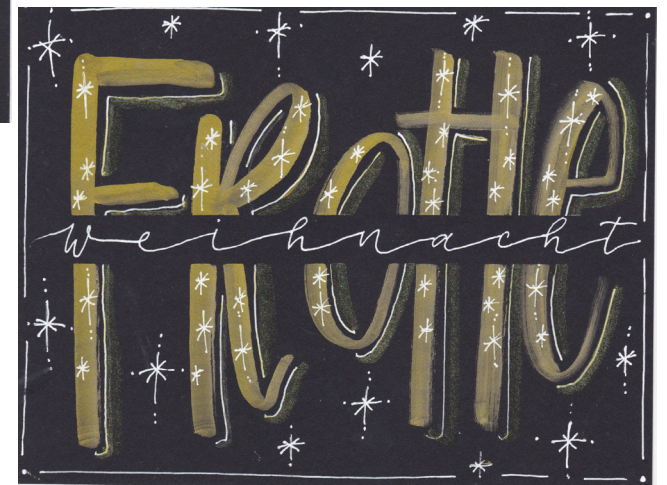 FRoHe
weihnacht